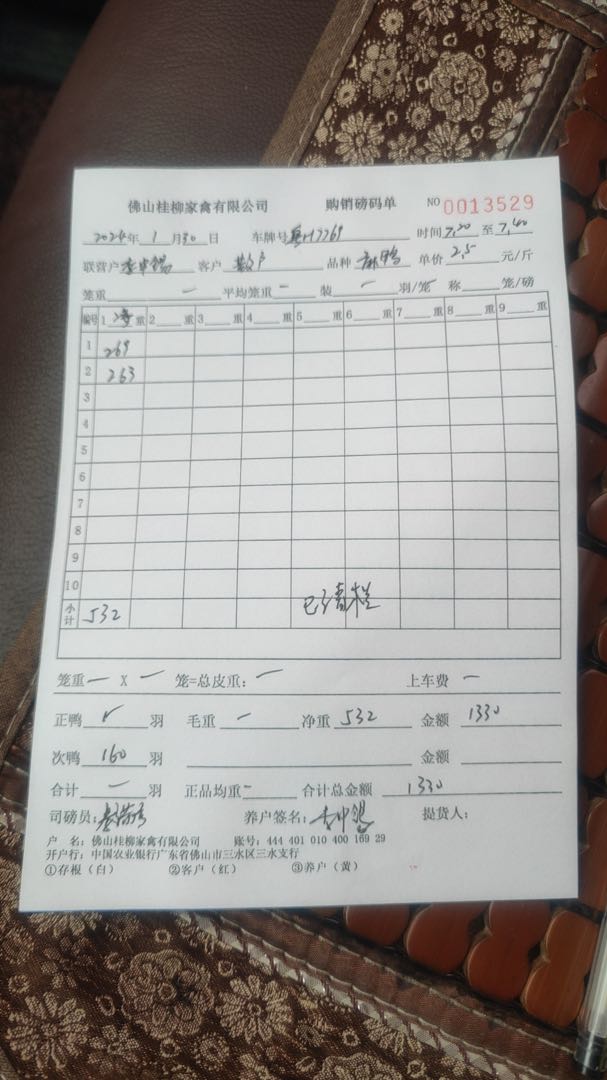 佛山桂柳家禽有限公司 购销磅码单 NO 0013529
2024年 1月30日 车牌号 H7769 时间 7,20 至 7,40
联营户 客户 散户 品种 麻鸭 单价 2.5 元/斤
笼重 一 平均笼重 一 装 一 羽/笼 称 笼/磅
编号 1 重 2 重 3 重 4 重 5 重 6 重 7 重 8 重 9 重
1 269
2 263
3
4
5
6
7
8
9
10
小计 532 已清栏
笼重 一 X 一 笼=总皮重: 一 上车费 一
正鸭 ✓ 羽 毛重 一 净重 532 金额 1330
次鸭 160 羽 金额
合计 一 羽 正品均重 一 合计总金额 1330
司磅员: 养户签名: 提货人:
户 名: 佛山桂柳家禽有限公司 账号: 444 401 010 400 169 29
开户行: 中国农业银行广东省佛山市三水区三水支行
①存根（白） ②客户（红） ③养户（黄）